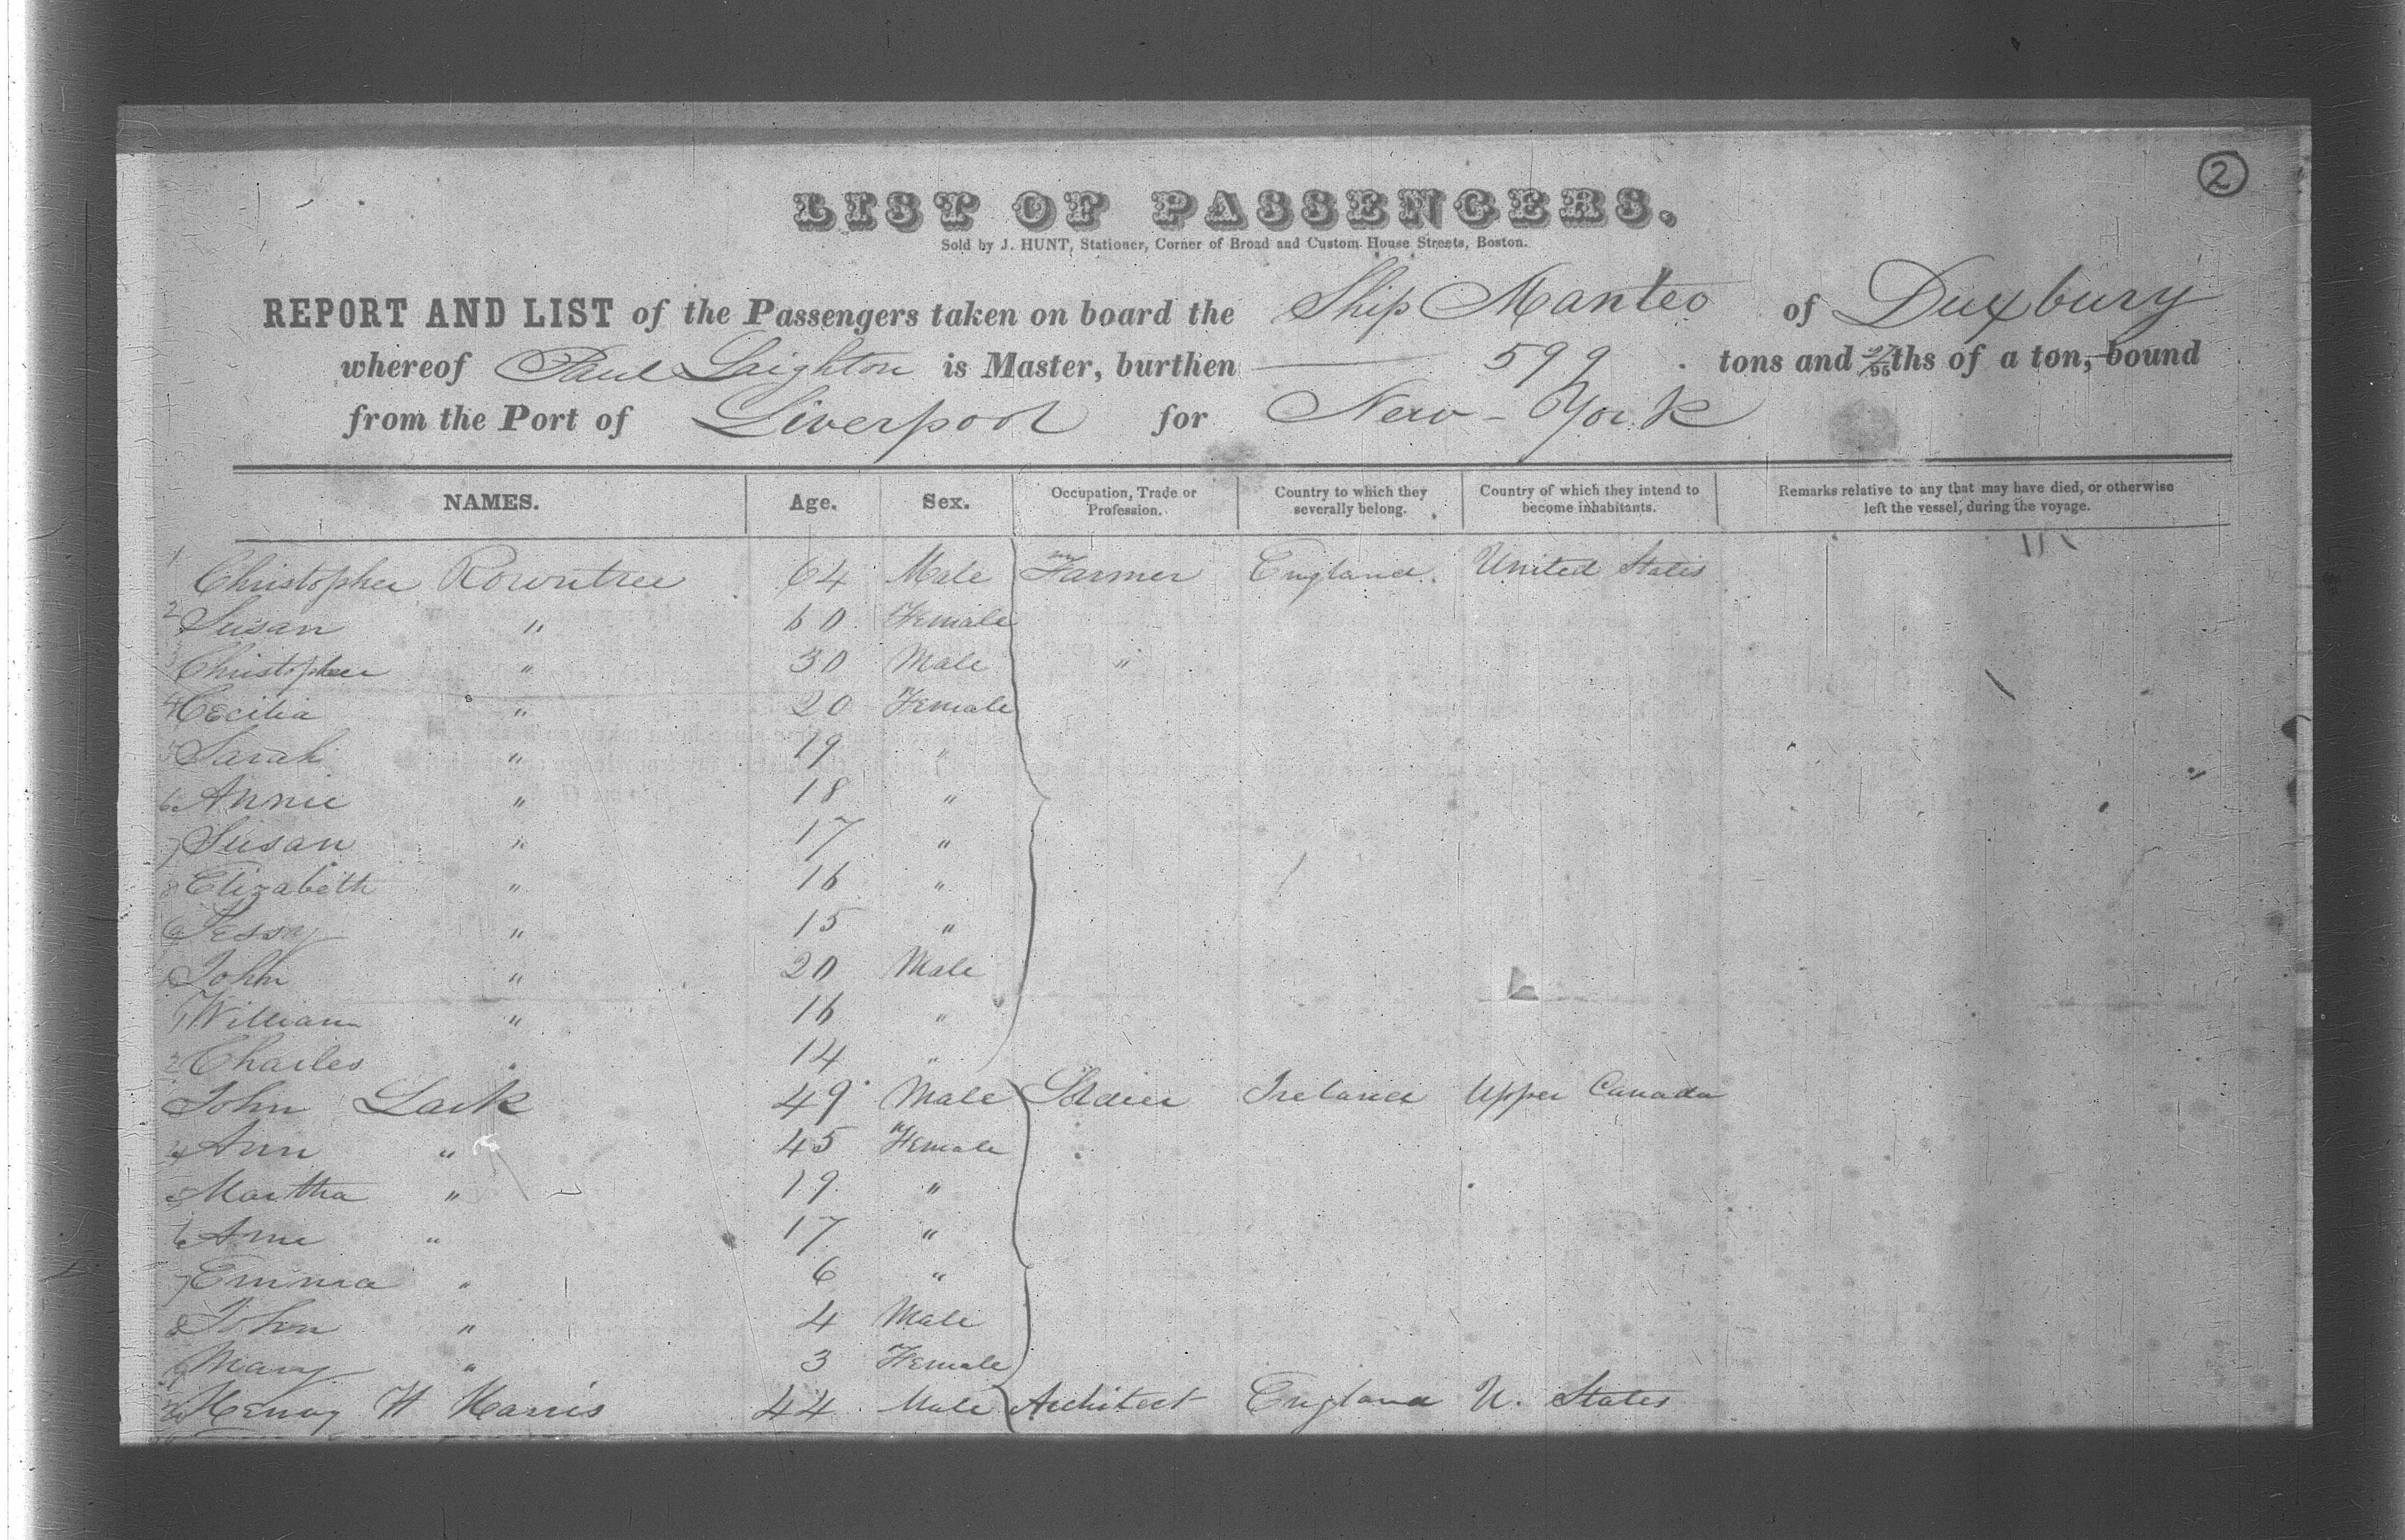 2
LIST OF PASSENGERS.
Sold by J. HUNT, Stationer, Corner of Broad and Custom House Streets, Boston.
REPORT AND LIST of the Passengers taken on board the Ship Manteo of Duxbury
whereof Paul Leighton is Master, burthen 599 tons and /95ths of a ton, bound
from the Port of Liverpool for New-York
NAMES. Age. Sex. Occupation, Trade or Profession. Country to which they severally belong. Country of which they intend to become inhabitants. Remarks relative to any that may have died, or otherwise left the vessel, during the voyage.
1 Christopher Rowntree 64 Male Farmer England. United States
2 Susan " 60 Female
Christopher " 30 Male "
4 Cecilia " 20 Female
5 Sarah " 19 "
6 Annie " 18 "
7 Susan " 17 "
8 Elizabeth " 16 "
Jessy " 15 "
John " 20 Male
1 William " 16 "
2 Charles " 14 "
John Lark 49 Male Soldier Ireland Upper Canada
4 Ann " 45 Female
5 Martha " 19 "
6 Ame " 17 "
7 Emma " 6 "
8 John " 4 Male
9 Mary " 3 Female
20 Henry W Harris 44 Male Architect England U. States